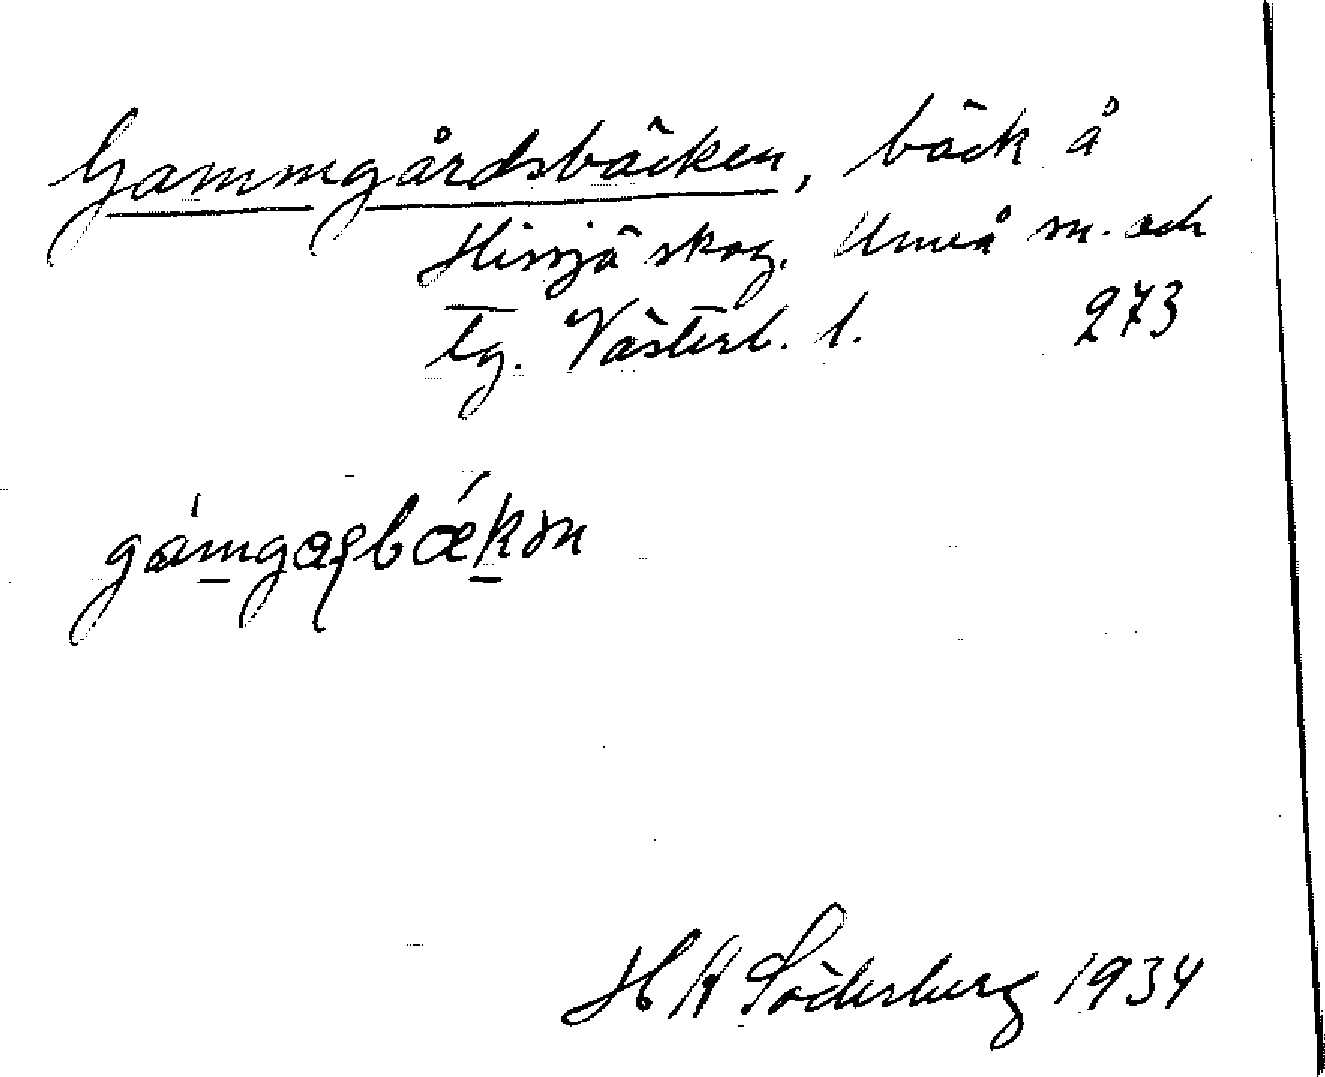 Gammgårdsbäcken, bäck å
Hissjö skog. Umeå sn. och
tg. Västerb. l. 273
H A Söderberg 1934